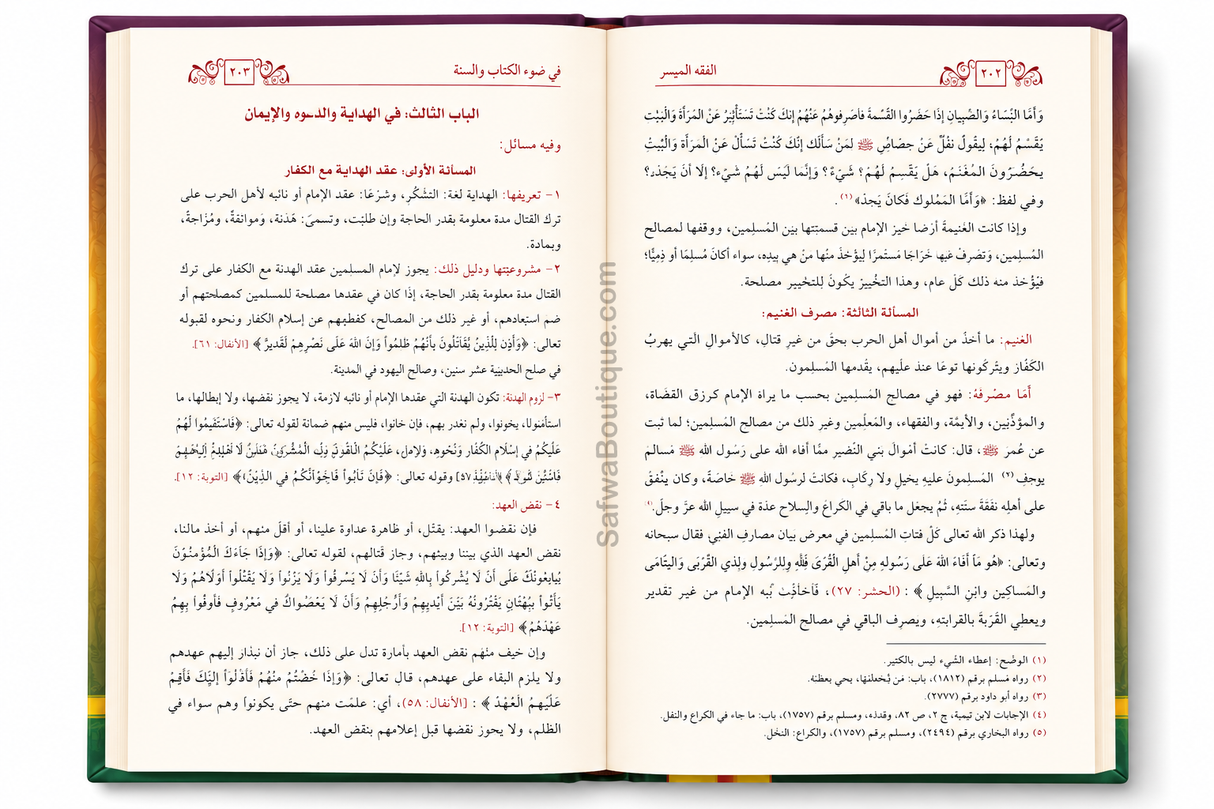 الفقه الميسر
٢٠٢
وَأَمَّا النِّسَاءُ وَالصِّبيانِ إذَا حَضَرُوا القِسْمةَ فاصَرِفوهُمْ عَنْهُمْ إنكَ كَنْتَ تَسْتَأْيَرُ عَنْ المَرْأةَ وَالْبَيْت
يُقَسْمُ لَهُمْ، لِيقُولُ نَفْلٌ عَنْ ﷺ لمَنْ سَأَلْكَ إنَّكَ كَنْتَ تَسْأَلْ عَنْ الْمَرَأةَ وَالْبَيْتُ
يحَضُرُونَ المغْنَمَ، هَلْ يَقْسِمُ لَهُمْ؟ شَيْءٌ؟ وَإنَّما لَيْسَ لَهُمْ شَيْء؟ إلَّا أنَ يَجَذَ؟
وفي لفظ: «وَأَمَّا المَمْلوك فَكانَ يَجذ»(١).
وإذا كانت الغَنيمةَ أرْضا خيز الإمام بين قسمتِتها بين المُسلِمين، ووقفها لمصالح
المُسلِمين، وَتَصْرفْ عَيها خَرَاجَا مَسْتَمرًا لِيؤخَذَ منْها منْ هي بِيدِه، سواء أكانَ مُسْلِمًا أو ذِميًّا؛
فيْؤُخذ منه ذلك كَلّ عام، وهذا التخْييرُ يكُونُ لِلتخْيير مصلحة.
المسألة الثالثة: مصرف الغنيم:
الغَنيم: ما أخذْ من أموال أهل الحرب بحقّ من غيرِ قتالِ، كالأموالِ الَّتي يهربُ
الكَفّار ويتْركُونها توعَا عنذ علْيهم، يقْدمها المُسلمون.
أَمَّا مصْرفهُ: فهو في مصالح المُسلِمين بحسب ما يراهَ الإمام كرزق القضَاة،
والمؤذِّنِين، والأيمَّة، والفقهاء، والمعلّمين وغير ذلك من مصالح المُسلِمين؛ لما ثبت
عن عُمرَ ﷺ، قال: كانتْ أمْوالُ بَني النُضير ممَّا أفاء الله على رَسُول الله ﷺ مَسالمَ
يوجفِ(٢) المُسلِمونَ عليهِ بخيلٍ ولا ركَابٍ، فكانتْ لرسُولِ اللهِ ﷺ خَاصَةً، وكان ينْفقْ
على أهلِهِ نفقَةَ سنَتهِ، ثُمَّ يجعَل ما باقي في الكراعَ والسِلاح عدَة في سبيلِ الله عزَّ وجلّ.(٤)
ولهذا ذكر الله تعالى كَلّ فتاتِ المُسلِمين في معرض بيان مصارفِ الفيْ فقال سبحانه
وتعالى: ﴿هُوَ مَآ أَفَاءَ اللهُ عَلَى رَسُولهِ مِنْ أهلِ الْقُرَى فَلِلَّهِ ولِلرَّسُولِ ولِذي القُرْبَى وَاليَتَامَى
والمَسَاكِينِ وابْنِ السَّبِيلِ﴾: (الحشر: ٢٧)، بْه الإمام من غير تقدير
ويعطي القَرَبةَ بالقرابتهِ، ويصرِف الباقي في مصالح المُسلِمين.
(١) الوضْح: إعطاء الشيْء ليس بالكثير.
(٢) رواه مُسلم برقم (١٨١٢)، باب: مَن يُجعلمْها، يحي بعطيَة.
(٣) رواه أبو داود برقم (٢٧٧٧).
(٤) الإجابات لابن تيمية، ج ٢، ص ٨٢، وقدذه، ومسلم برقم (١٧٥٧)، باب: ما جاء في الكراع والنفل.
(٥) رواه البخاري برقم (٢٤٩٤)، ومسلم برقم (١٧٥٧)، والكراع: النخَل.
في ضوء الكتاب والسنة
٢٠٣
الباب الثالث: في الهداية والدعوه والإيمان
وفيه مسائل:
المسألة الأولى: عقد الهداية مع الكفار
١- تعريفها: الهداية لغة: التشكُّر، وشرْعَا: عقد الإمام أو نائبه لأهل الحرب على
ترك القتال مدة معلومة بقدر الحاجة وإن طلبْت، وتسمىَ: هَدَنة، ومَوائقةٌ، ومُزَاجةٌ،
وبمادة.
٢- مشروعيْتها ودليل ذلك: يجوز لإمام المسلمين عقد الهدنة مع الكفار على ترك
القتال مدة معلومة بقدر الحاجة، إذَا كان في عقدها مصلحة للمسلمين كمصلحتهم أو
ضم استبعادهم، أو غير ذلك من المصالح، كفطيْهم عن إسلام الكفار ونحوه لقبوله
تعالى: ﴿وَأُذِن لِلَّذِينُ يُقَاتَلُونَ بِأَنَّهُمْ ظلمُواْ وَإنَّ اللهَ عَلَى نَصْرِهِمْ لَقَدِيرٌ﴾ [الأنفال: ٦١].
في صلح الحديبية عشر سنين، وصالح اليهود في المدينة.
٣- لزوم الهدنة: تكون الهدنة التي عقدها الإمام أو نائبه لازمة، لا يجوز نقضها، ولا إبطالها، ما
يخونوا، ولم نغدر بهم، فإن خانوا، فليس منهم ضمانة لقوله تعالى: ﴿فَاسْتَقِيمُوا لَهُمْ
عَلَيْكُمْ في إسْلَام الكُفَّار وَنَحْوِه،
وقوله تعالى: ﴿فَإنْ تَابُواْ في الدِّيْنُ﴾ [التوبة: ١٢].
٤- نقض العهد:
فإن نقضُوا العهد: يقتْل، أو ظاهرة عداوة علينا، أو أقلَ منهم، أو أخذ مالنا،
نقض العهد الذي بيننا وبيْنهم، وجاز قتالهم، لقوله تعالى: ﴿وَإذَا جَآءَكَ الْمُؤْمِنُوْنَ
يُبايعُونُكٌ عَلَى أَنْ لَا يُشْركُواْ بِاللهِ شَيْئًا وَأَنْ لَا يَسْرقُواْ وَلَا يَزْنُواْ وَلَا يَقْتُلُواْ أوْلَادَهُمْ وَلَا
يَأتُواْ بِبُهْتَانٍ يَفْتَرُونَهُ بَيْنَ أيْدِيهِمْ وَأَرْجُلِهِمْ وَأَنْ لَا يَعْصُواكَ في مَعْرُوفٍ فَأوفُواْ بِهِمْ
عَهْدَهُمْ﴾ [التوبة: ١٢].
وإن خيف منْهم نقض العهد بأمارة تدل على ذلك، جاز أن نبذار إليهم عهدهم
ولا يلزم البقاء على عهدهم، قال تعالى: ﴿وَإذَا خَضْتُمْ منْهُمْ إلَيْكَ فَأَقِمْ
عَلَيْهِمُ الْعُهْدْ﴾: [الأنفال: ٥٨]، أي: علمْت منهم حتّى يكونوا وهم سواء في
الظلم، ولا يحوز نقضها قبل إعلامهم بنقض العهد.
SafwaBoutique.com